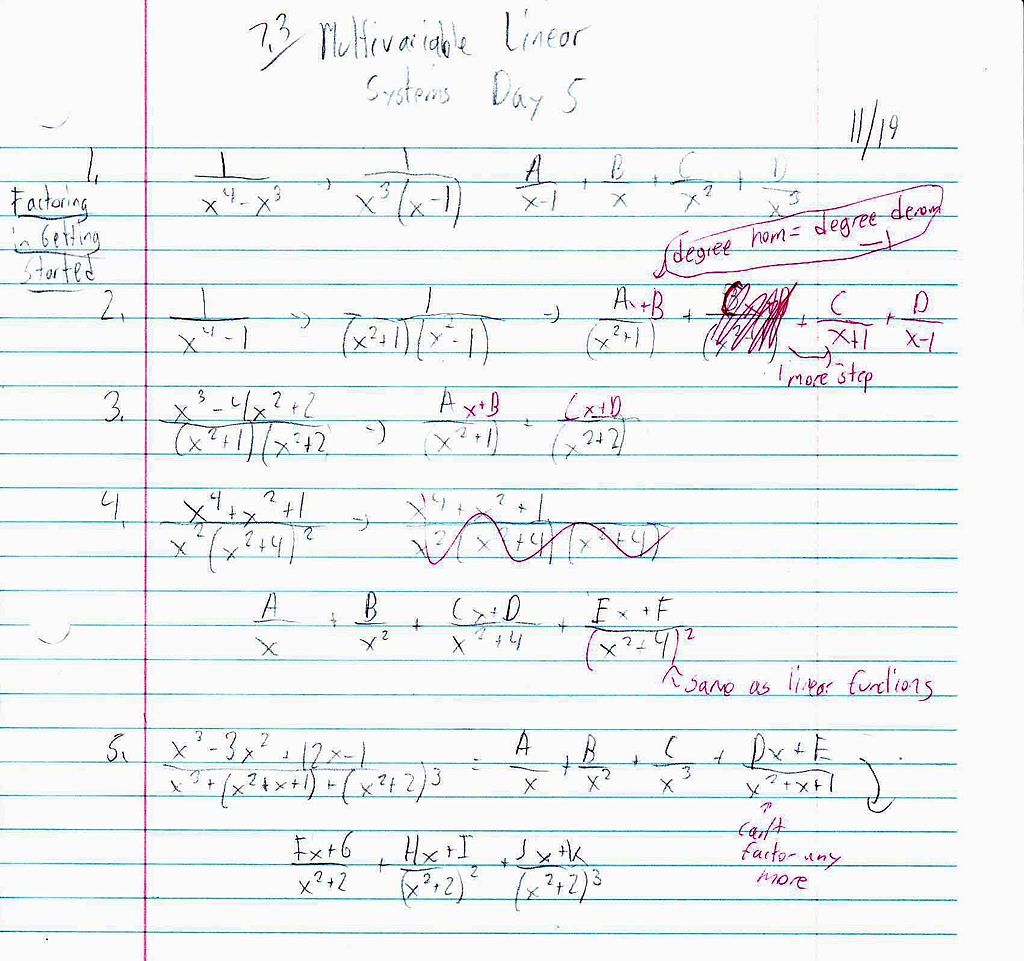 7.3 Multivariable Linear
Systems Day 5
11/19
Factoring
in Getting
Started
1. 1/(x⁴ - x³) → 1/(x³(x-1)) A/(x-1) + B/x + C/x² + D/x³
degree nom = degree denom
-1
2. 1/(x⁴-1) → 1/((x²+1)(x²-1)) → (Ax+B)/(x²+1) + + C/(x+1) + D/(x-1)
1 more step
3. (x³-4x²+2)/((x²+1)(x²+2) → (Ax+B)/(x²+1) + (Cx+D)/(x²+2)
4. (x⁴+x²+1)/(x²(x²+4)²) → (x⁴+x²+1)/(x²(x²+4)(x²+4))
A/x + B/x² + (Cx+D)/(x²+4) + (Ex+F)/(x²+4)²
^same as linear functions
5. (x³-3x²+12x-1)/(x³+(x²+x+1)+(x²+2)³) = A/x + B/x² + C/x³ + (Dx+E)/(x²+x+1)
↑
can't
factor any
more
(Fx+G)/(x²+2) + (Hx+I)/(x²+2)² + (Jx+K)/(x²+2)³